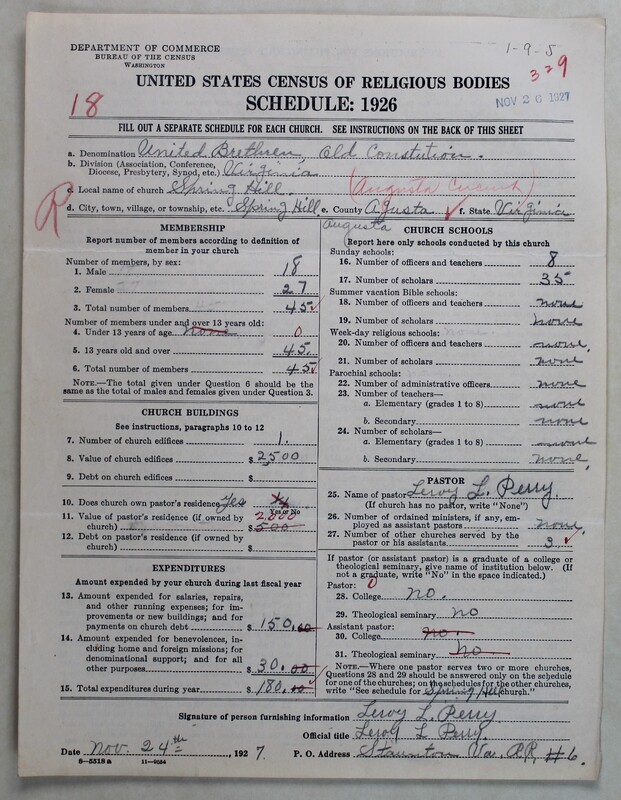 DEPARTMENT OF COMMERCE
BUREAU OF THE CENSUS
WASHINGTON
1-9-5
329
NOV 26 1927
18
UNITED STATES CENSUS OF RELIGIOUS BODIES
SCHEDULE: 1926
FILL OUT A SEPARATE SCHEDULE FOR EACH CHURCH. SEE INSTRUCTIONS ON THE BACK OF THIS SHEET
a. Denomination United Brethren, Old Constution.
b. Division (Association, Conference, Diocese, Presbytery, Synod, etc.) Virginia
c. Local name of church Spring Hill (Augusta Circuit)
d. City, town, village, or township, etc. Spring Hill e. County Agusta ✓ f. State Virginia
R
Augusta
MEMBERSHIP
Report number of members according to definition of member in your church
Number of members, by sex:
1. Male 18
2. Female 27
3. Total number of members 45 ✓
Number of members under and over 13 years old:
4. Under 13 years of age none 0
5. 13 years old and over 45
6. Total number of members 45 ✓
NOTE.—The total given under Question 6 should be the same as the total of males and females given under Question 3.
CHURCH BUILDINGS
See instructions, paragraphs 10 to 12
7. Number of church edifices 1.
8. Value of church edifices $ 2500
9. Debt on church edifices $
10. Does church own pastor's residence yes
Yes or No
11. Value of pastor's residence (if owned by church) $ 500 2000
12. Debt on pastor's residence (if owned by church) $
EXPENDITURES
Amount expended by your church during last fiscal year
13. Amount expended for salaries, repairs, and other running expenses; for improvements or new buildings; and for payments on church debt $ 150.00
14. Amount expended for benevolences, including home and foreign missions; for denominational support; and for all other purposes $ 30.00
15. Total expenditures during year $ 180.00 ✓
CHURCH SCHOOLS
Report here only schools conducted by this church
Sunday schools:
16. Number of officers and teachers 8
17. Number of scholars 35
Summer vacation Bible schools:
18. Number of officers and teachers none
19. Number of scholars none
Week-day religious schools:
20. Number of officers and teachers none.
21. Number of scholars none
Parochial schools:
22. Number of administrative officers none
23. Number of teachers—
a. Elementary (grades 1 to 8) none
b. Secondary none
24. Number of scholars—
a. Elementary (grades 1 to 8) none
b. Secondary none.
PASTOR
25. Name of pastor Leroy L. Perry
(If church has no pastor, write "None")
26. Number of ordained ministers, if any, employed as assistant pastors none
27. Number of other churches served by the pastor or his assistants 3 ✓
If pastor (or assistant pastor) is a graduate of a college or theological seminary, give name of institution below. (If not a graduate, write "No" in the space indicated.)
Pastor: 0
28. College no.
29. Theological seminary no
Assistant pastor:
30. College no.
31. Theological seminary no
NOTE.—Where one pastor serves two or more churches, Questions 28 and 29 should be answered only on the schedule for one of the churches; on the schedules for the other churches, write "See schedule for Spring Hill church."
Signature of person furnishing information Leroy L. Perry
Official title Leroy L Perry.
Date Nov. 24th, 1927. P. O. Address Staunton Va. RR, #6.
6-5518a 11-9034